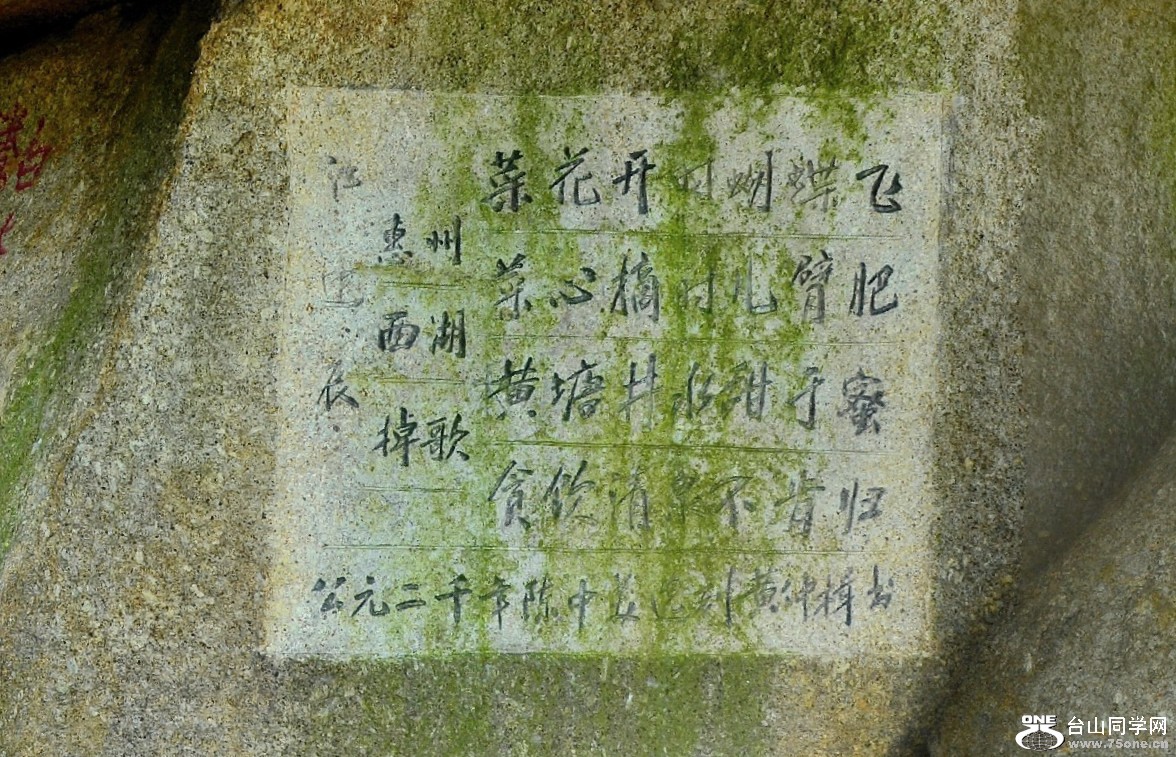 菜花开时蝴蝶飞
菜心摘时儿臂肥
黄塘井水甜于蜜
贪饮清泉不肯归
惠州
西湖
掉歌
江逢辰
公元二千年陈中 刻黄仲楫书
ONE
台山同学网
www.75one.cn